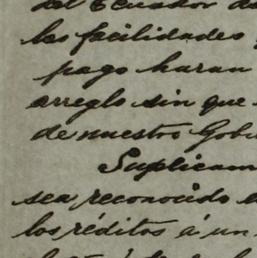 del Ecuador
las facilidades
pago haran
arreglo sin que
de nuestro Gobi
Suplicam
sea reconocido
los réditos á un